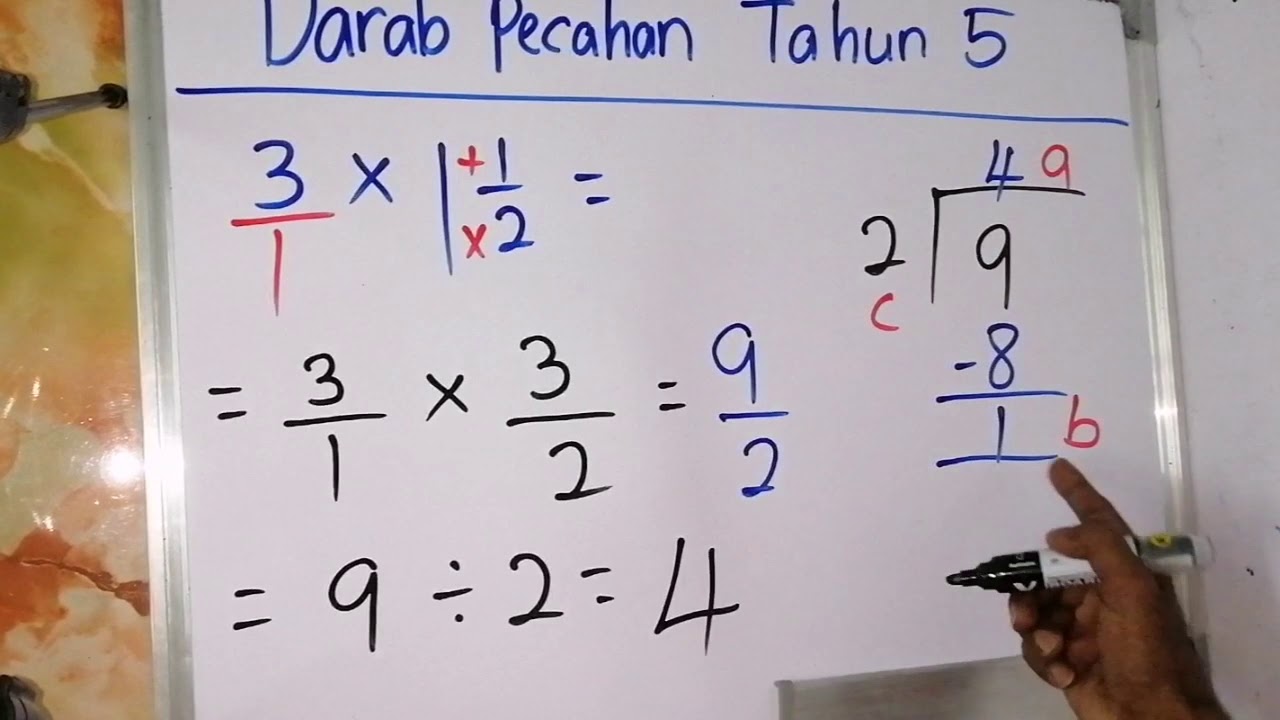 Darab Pecahan Tahun 5
3/1 × 1 + × 1/2 =
= 3/1 × 3/2 = 9/2
= 9 ÷ 2 = 4
4 a
2 9
c
-8
1 b